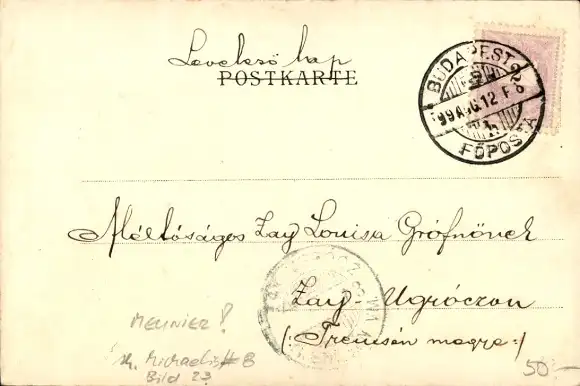 Levelező lap
POSTKARTE
BUDAPEST
99 AUG. 12
FŐPOSTA
Méltóságos Zay Louisa Grófnőnek
Zay-Ugróczon
(: Trencsén megye :)
MEUNIER!
Michaelis # 8
Bild 23
50.-